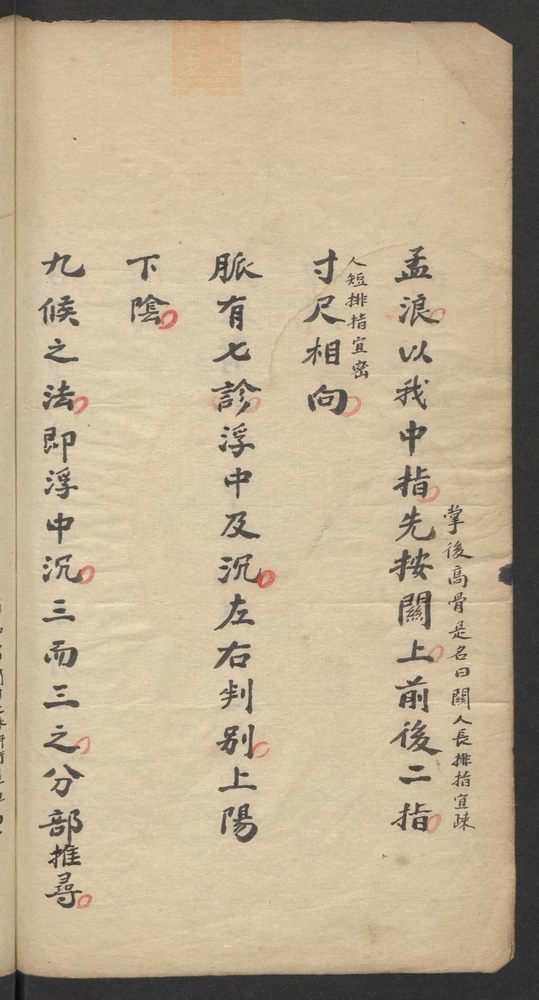 掌後高骨是名曰關人長排指宜疎
孟浪以我中指先按關上前後二指
人短排指宜密
寸尺相向
脈有七診浮中及沉左右判别上陽
下陰
九候之法即浮中沉三而三之分部推尋